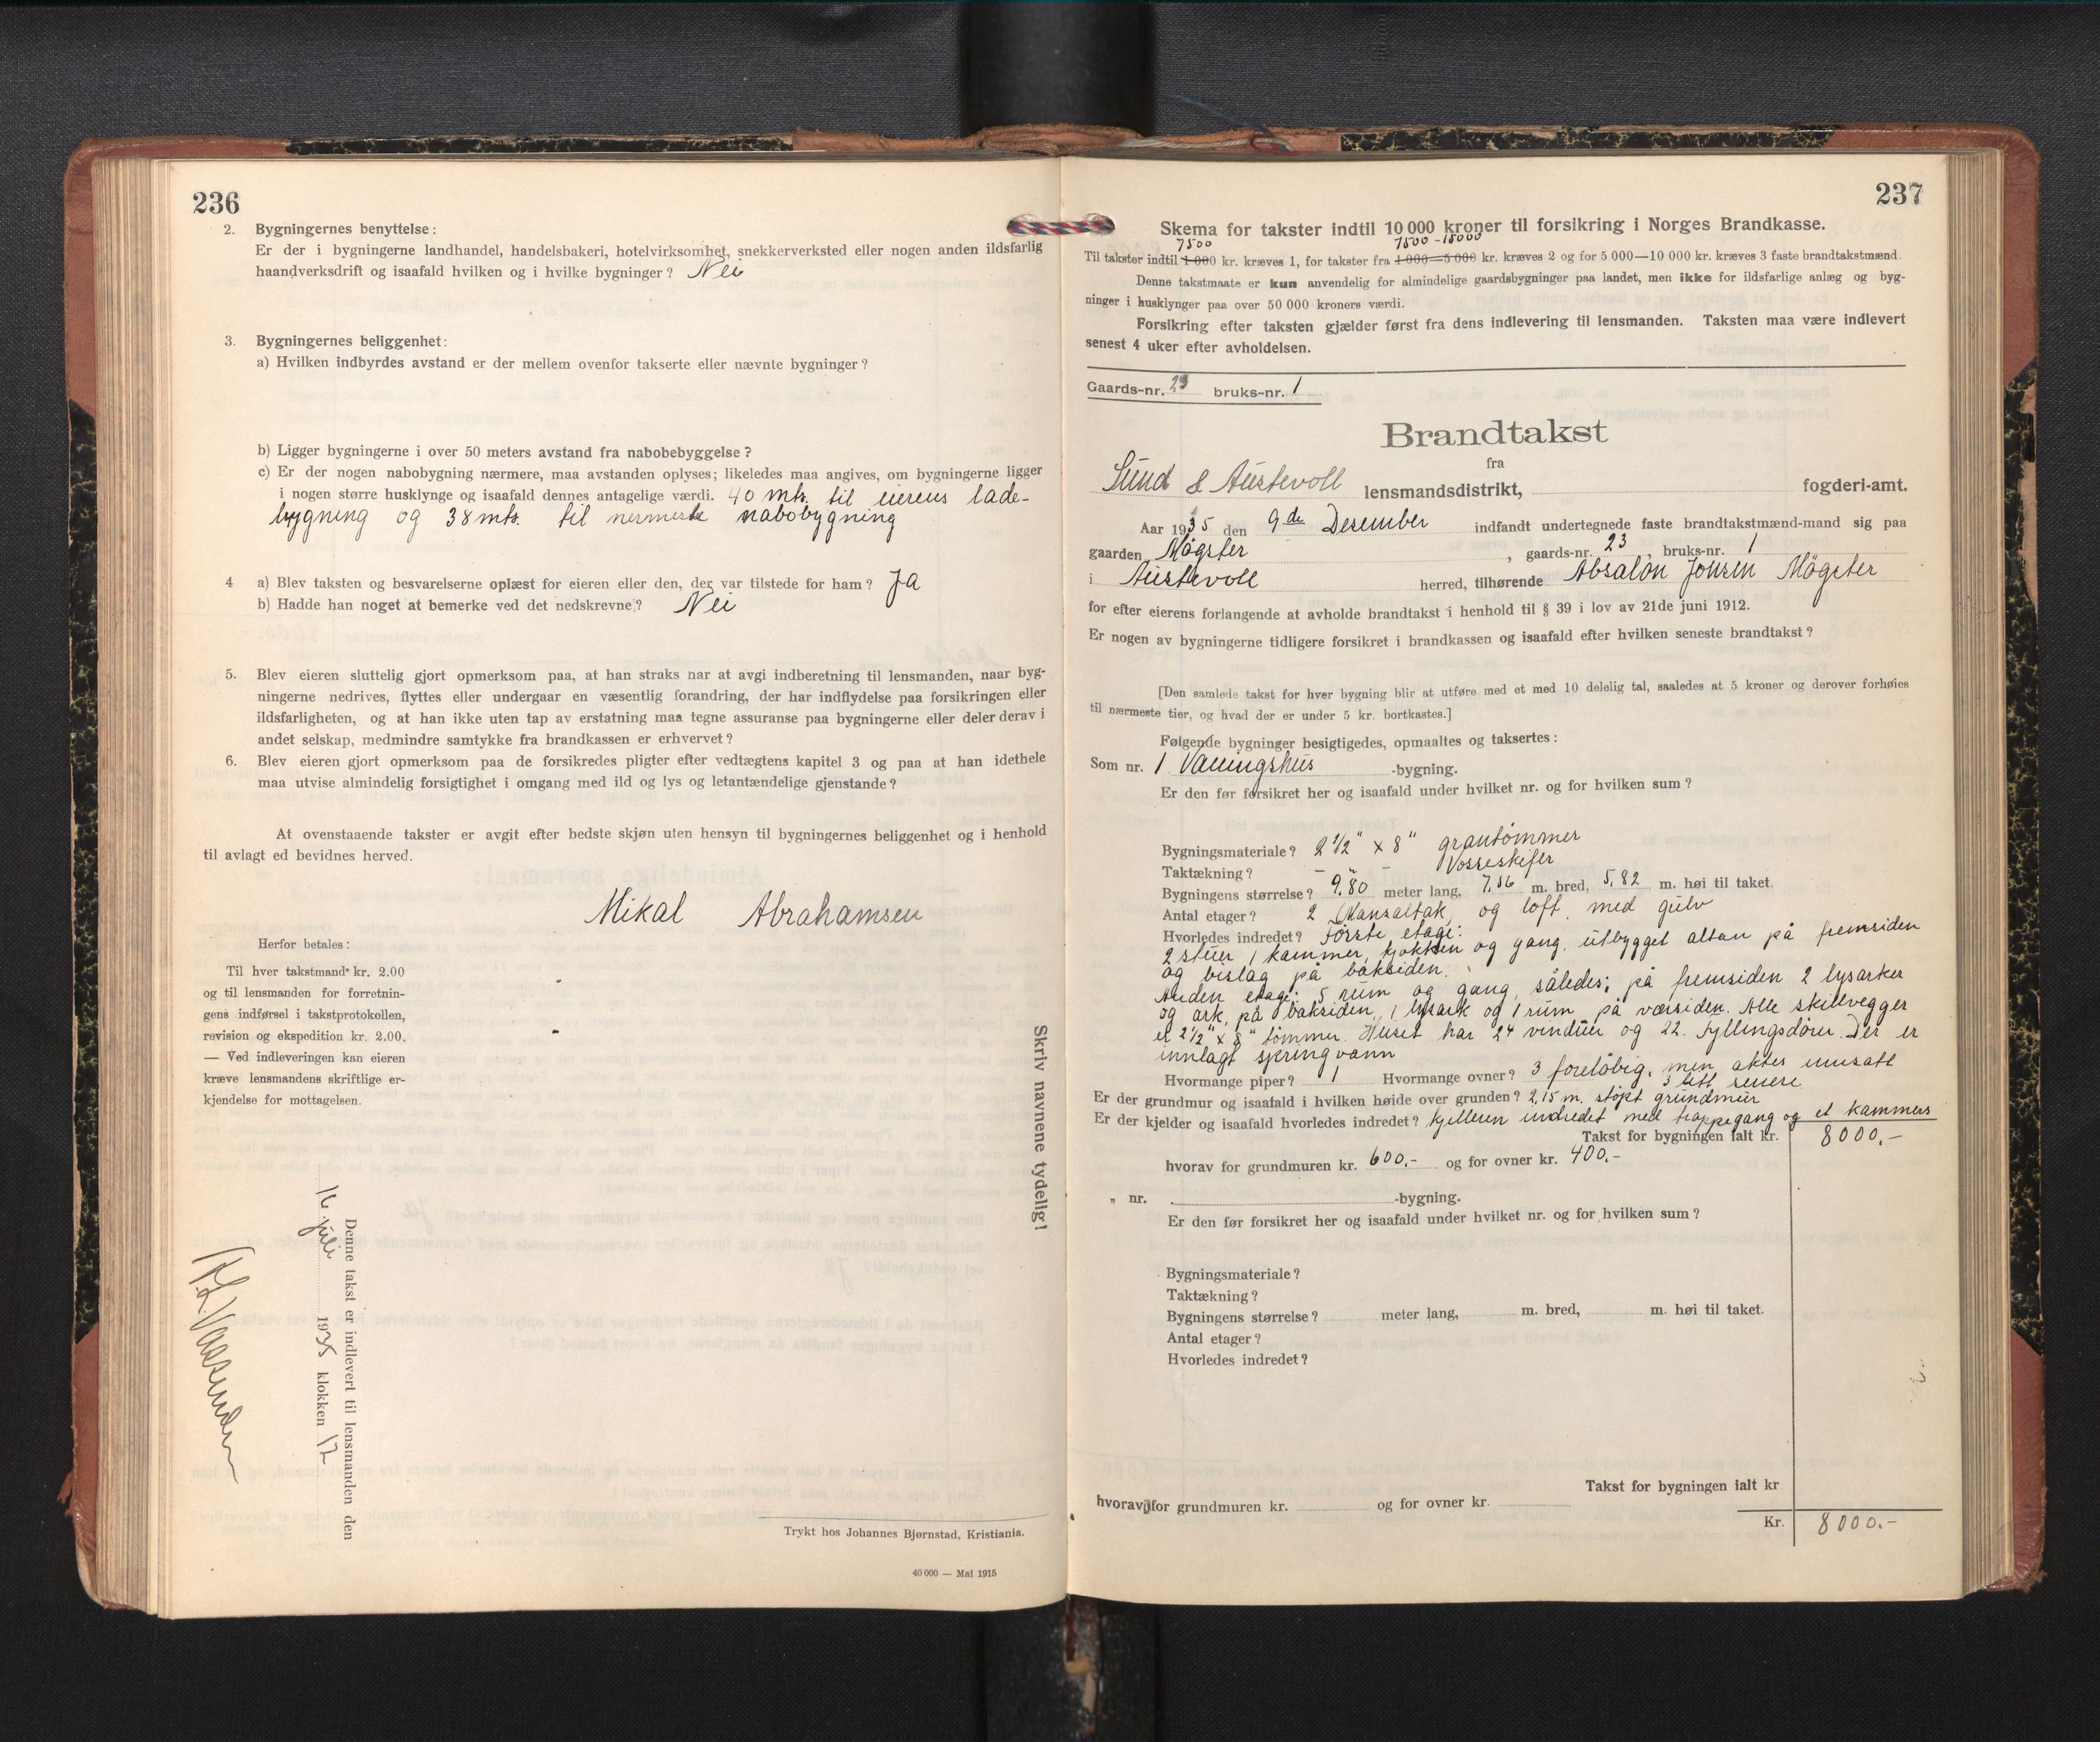 236
2. Bygningernes benyttelse:
Er der i bygningerne landhandel, handelsbakeri, hotelvirksomhet, snekkerverksted eller nogen anden ildsfarlig
haandverksdrift og isaafald hvilken og i hvilke bygninger? Nei
3. Bygningernes beliggenhet:
a) Hvilken indbyrdes avstand er der mellem ovenfor takserte eller nævnte bygninger?
b) Ligger bygningerne i over 50 meters avstand fra nabobebyggelse?
c) Er der nogen nabobygning nærmere, maa avstanden oplyses; likeledes maa angives, om bygningerne ligger
i nogen større husklynge og isaafald dennes antagelige værdi. 40 mtr. til eierens lade-
bygning og 38 mtr. til nermeste nabobygning
4 a) Blev taksten og besvarelserne oplæst for eieren eller den, der var tilstede for ham? Ja
b) Hadde han noget at bemerke ved det nedskrevne? Nei
5. Blev eieren sluttelig gjort opmerksom paa, at han straks har at avgi indberetning til lensmanden, naar byg-
ningerne nedrives, flyttes eller undergaar en væsentlig forandring, der har indflydelse paa forsikringen eller
ildsfarligheten, og at han ikke uten tap av erstatning maa tegne assuranse paa bygningerne eller deler derav i
andet selskap, medmindre samtykke fra brandkassen er erhvervet?
6. Blev eieren gjort opmerksom paa de forsikredes pligter efter vedtægtens kapitel 3 og paa at han idethele
maa utvise almindelig forsigtighet i omgang med ild og lys og letantændelige gjenstande?
At ovenstaaende takster er avgit efter bedste skjøn uten hensyn til bygningernes beliggenhet og i henhold
til avlagt ed bevidnes herved.
Mikal Abrahamsen
Herfor betales:
Til hver takstmand kr. 2.00
og til lensmanden for forretnin-
gens indførsel i takstprotokollen,
revision og ekspedition kr. 2.00.
— Ved indleveringen kan eieren
kræve lensmandens skriftlige er-
kjendelse for mottagelsen.
Skriv navnene tydelig!
Denne takst er indlevert til lensmanden den
16 juli 1935 klokken 12
Trykt hos Johannes Bjørnstad, Kristiania.
40 000 — Mai 1915
237
Skema for takster indtil 10 000 kroner til forsikring i Norges Brandkasse.
7500 7500 - 15000
Til takster indtil 1 000 kr. kræves 1, for takster fra 1 000—5 000 kr. kræves 2 og for 5 000—10 000 kr. kræves 3 faste brandtakstmænd.
Denne takstmaate er kun anvendelig for almindelige gaardsbygninger paa landet, men ikke for ildsfarlige anlæg og byg-
ninger i husklynger paa over 50 000 kroners værdi.
Forsikring efter taksten gjælder først fra dens indlevering til lensmanden. Taksten maa være indlevert
senest 4 uker efter avholdelsen.
Gaards-nr. 23 bruks-nr. 1
Brandtakst
fra
Sund & Austevoll lensmandsdistrikt, fogderi-amt.
Aar 1935 den 9de Desember indfandt undertegnede faste brandtakstmænd-mand sig paa
gaarden Møgster, gaards-nr. 23, bruks-nr. 1
i Austevoll herred, tilhørende Absalon Jonsen Møgster
for efter eierens forlangende at avholde brandtakst i henhold til § 39 i lov av 21de juni 1912.
Er nogen av bygningerne tidligere forsikret i brandkassen og isaafald efter hvilken seneste brandtakst?
[Den samlede takst for hver bygning blir at utføre med et med 10 delelig tal, saaledes at 5 kroner og derover forhøies
til nærmeste tier, og hvad der er under 5 kr. bortkastes.]
Følgende bygninger besigtigedes, opmaaltes og taksertes:
Som nr. 1 Vaningshus -bygning.
Er den før forsikret her og isaafald under hvilket nr. og for hvilken sum?
Bygningsmateriale? 2 1/2" x 8" grantømmer
Taktækning? Vosseskifer
Bygningens størrelse? 9,80 meter lang, 7,56 m. bred, 5,82 m. høi til taket.
Antal etager? 2 Mansaltak og loft med gulv
Hvorledes indredet? Første etage:
2 stuer 1 kammer, kjøkken og gang. utbygget altan på fremsiden
og bislag på baksiden.
Anden etage: 5 rum og gang, således: på fremsiden 2 lysarker
og ark på baksiden, 1 lysark og 1 rum på værsiden. Alle skillvegger
er 2 1/2" x 8" tømmer. Huset har 24 vinduer og 22 fyllingsdører. Der er
innlagt springvann
Hvormange piper? 1 Hvormange ovner? 3 foreløbig, men aktes innsatt
3 til senere
Er der grundmur og isaafald i hvilken høide over grunden? 2,15 m. støpt grundmur
Er der kjelder og isaafald hvorledes indredet? Kjelleren indredet med trappegang og et kammers
Takst for bygningen ialt kr. 8000.-
hvorav for grundmuren kr. 600.- og for ovner kr. 400.-
„ nr. -bygning.
Er den før forsikret her og isaafald under hvilket nr. og for hvilken sum?
Bygningsmateriale?
Taktækning?
Bygningens størrelse? meter lang, m. bred, m. høi til taket.
Antal etager?
Hvorledes indredet?
Takst for bygningen ialt kr
hvorav for grundmuren kr. og for ovner kr.
Kr. 8000.-